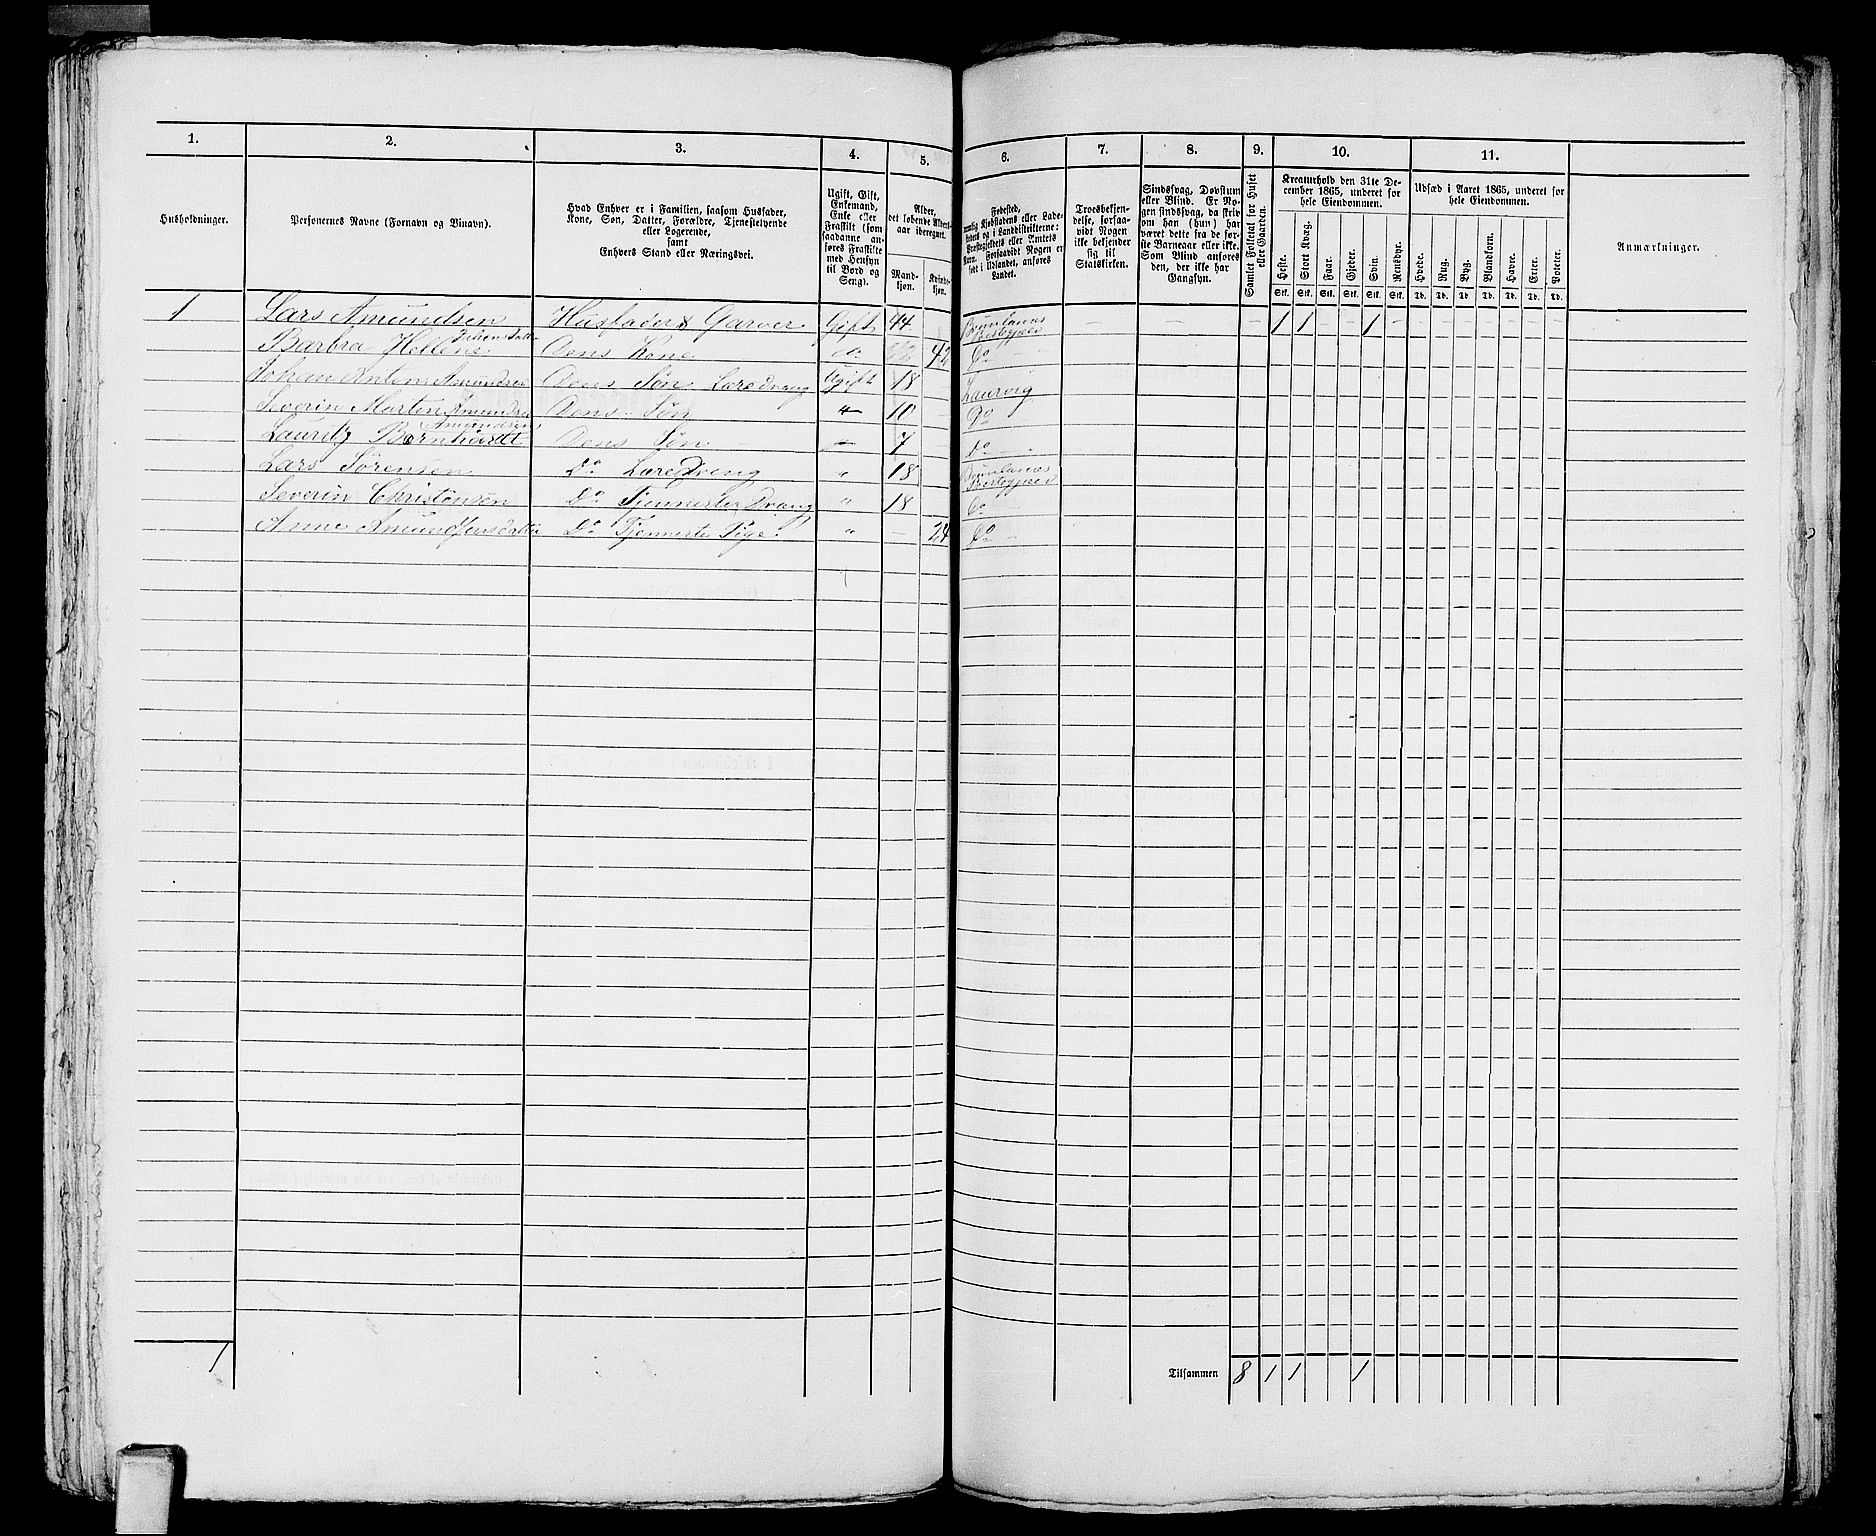 1. 2. 3. 4. 5. 6. 7. 8. 9. 10. 11.
Husholdninger.
Personernes Navne (Fornavn og Binavn).
Hvad Enhver er i Familien, saasom Husfader,
Kone, Søn, Datter, Forældre, Tjenestetyende
eller Logerende,
samt
Enhvers Stand eller Næringsvei.
Ugift, Gift,
Enkemand,
Enke eller
Fraskilt (som
saadanne an-
føres Fraskilte
med Hensyn
til Bord og
Seng).
Alder,
det løbende Alders-
aar iberegnet.
Mand-
kjøn.
Kvinde-
kjøn.
Fødested,
nemlig Kjøbstadens eller Lade-
stedets og i Landdistrikterne:
Præstegjeldets eller Amtets
Navn. Forsaavidt Nogen er
født i Udlandet, anføres
Landet.
Troesbekjen-
delse, forsaa-
vidt Nogen
ikke bekjender
sig til
Statskirken.
Sindssvag, Døvstum
eller Blind. Er No-
gen sindssvag, da skriv
om han (hun) har
været dette fra de før-
ste Barneaar eller ikke.
Som Blind anføres
den, der ikke har
Gangsyn.
Samlet Folketal for Huset
eller Gaarden.
Kreaturhold den 31te De-
cember 1865, underet for
hele Eiendommen.
Heste. Stort Kvæg. Faar. Gjeder. Svin. Rensdyr.
Stk. Stk. Stk. Stk. Stk. Stk.
Udsæd i Aaret 1865, underet for
hele Eiendommen.
Hvede. Rug. Byg. Blandkorn. Havre. Erter. Poteter.
Td. Td. Td. Td. Td. Td. Td.
Anmærkninger.
1 Lars Amundsen Husfader & Garver Gift 44 Brunlanæs Præstegjæld — — — 1 1 — — 1 —
Barbra Hellene Dens Kone do 42 do
Johan Anton Amundsen Dens Søn Læredræng Ugift 18 Laurvig
Severin Martin Amundsen Dens Søn " 10 Do
Lauritz Bernhardt Amundsen Dens Søn " 7 do
Lars Sørensen Do Læredreng " 18 Brunlanæs Præstegjæld
Severin Christensen Do Tjenneste Dræng " 18 do
Anne Amundsensdatter Do Tjenneste Pige " — 24 do
1 Tilsammen 8 1 1 1